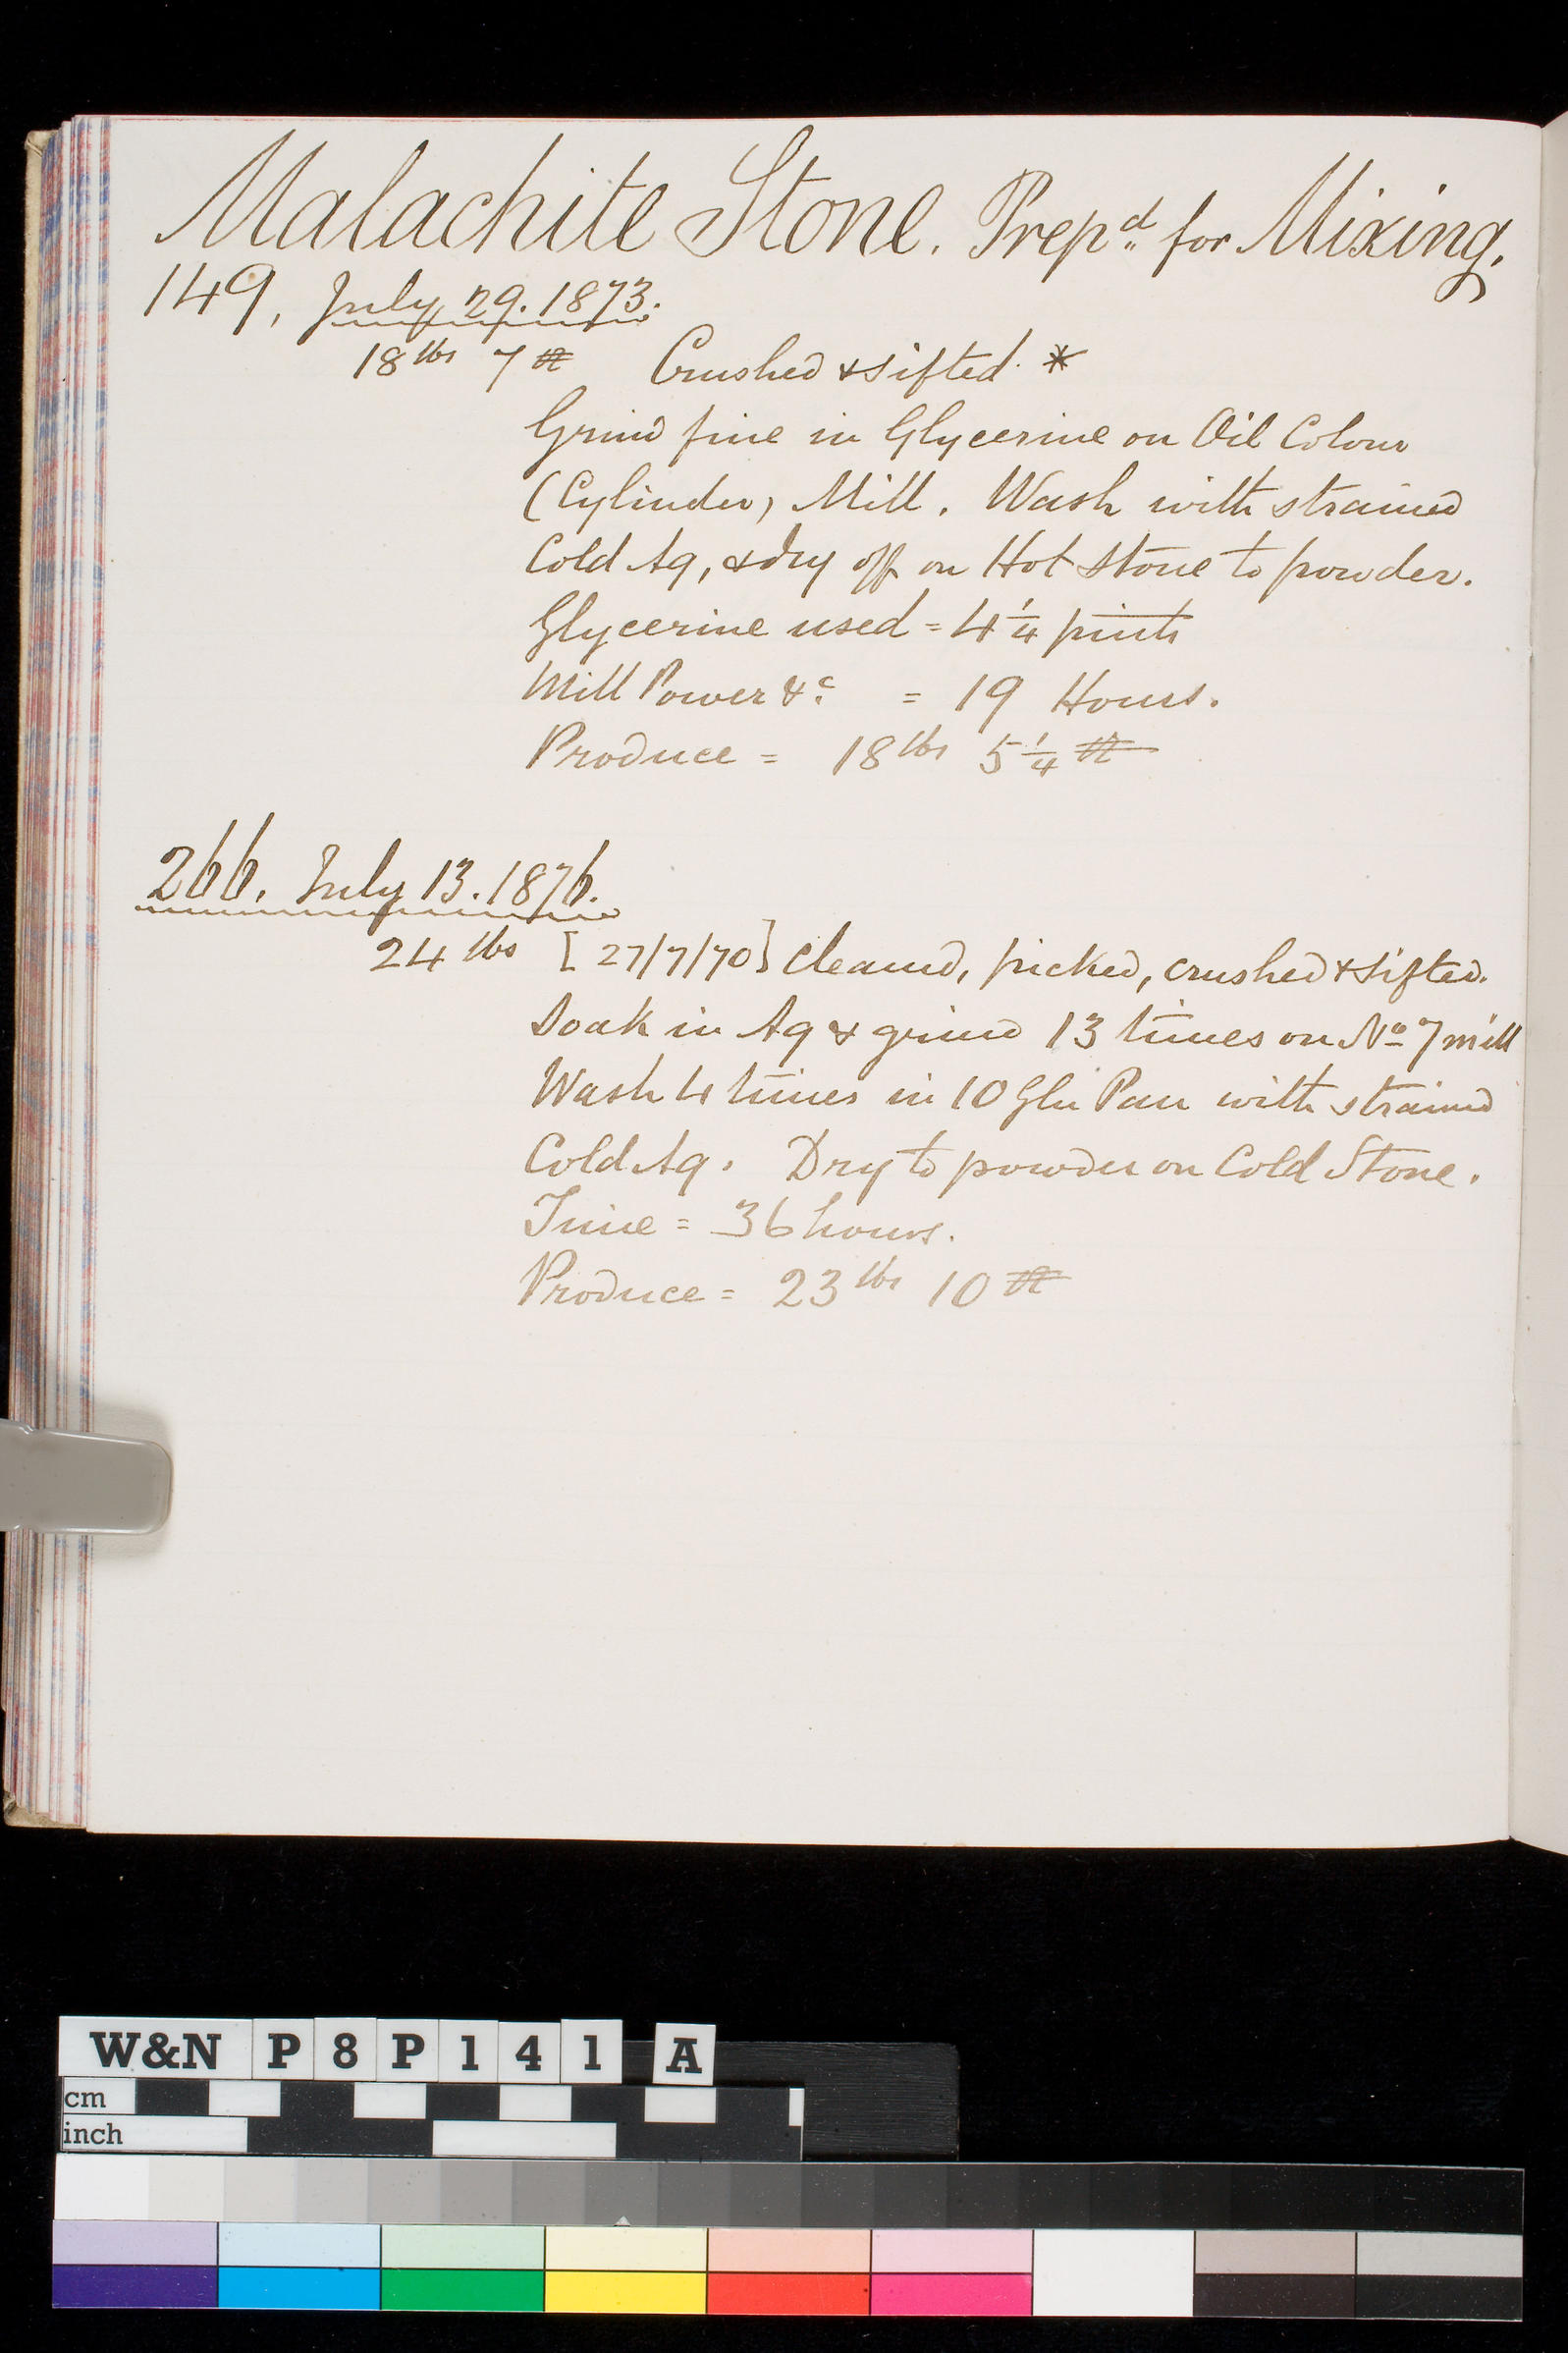 Malachite Stone. Prepd for Mixing.
149, July 29. 1873.
18 lbs 7 Crushed & sifted. *
Grind fine in Glycerine on Oil Colour
(Cylinder) Mill. Wash with strained
Cold Aq, & dry off on Hot Stone to powder.
Glycerine used = 4 1/4 pints
Mill Power &c = 19 Hours.
Produce = 18 lbs 5 1/4
266. July 13. 1876.
24 lbs [27/7/70] Cleaned, picked, crushed & sifted.
Soak in Aq & grind 13 times on No 7 mill
Wash 4 times in 10 Gln Pan with strained
Cold Aq. Dry to powder on Cold Stone.
Time = 36 hours.
Produce = 23 lbs 10
W&N P8P141 A
cm
inch